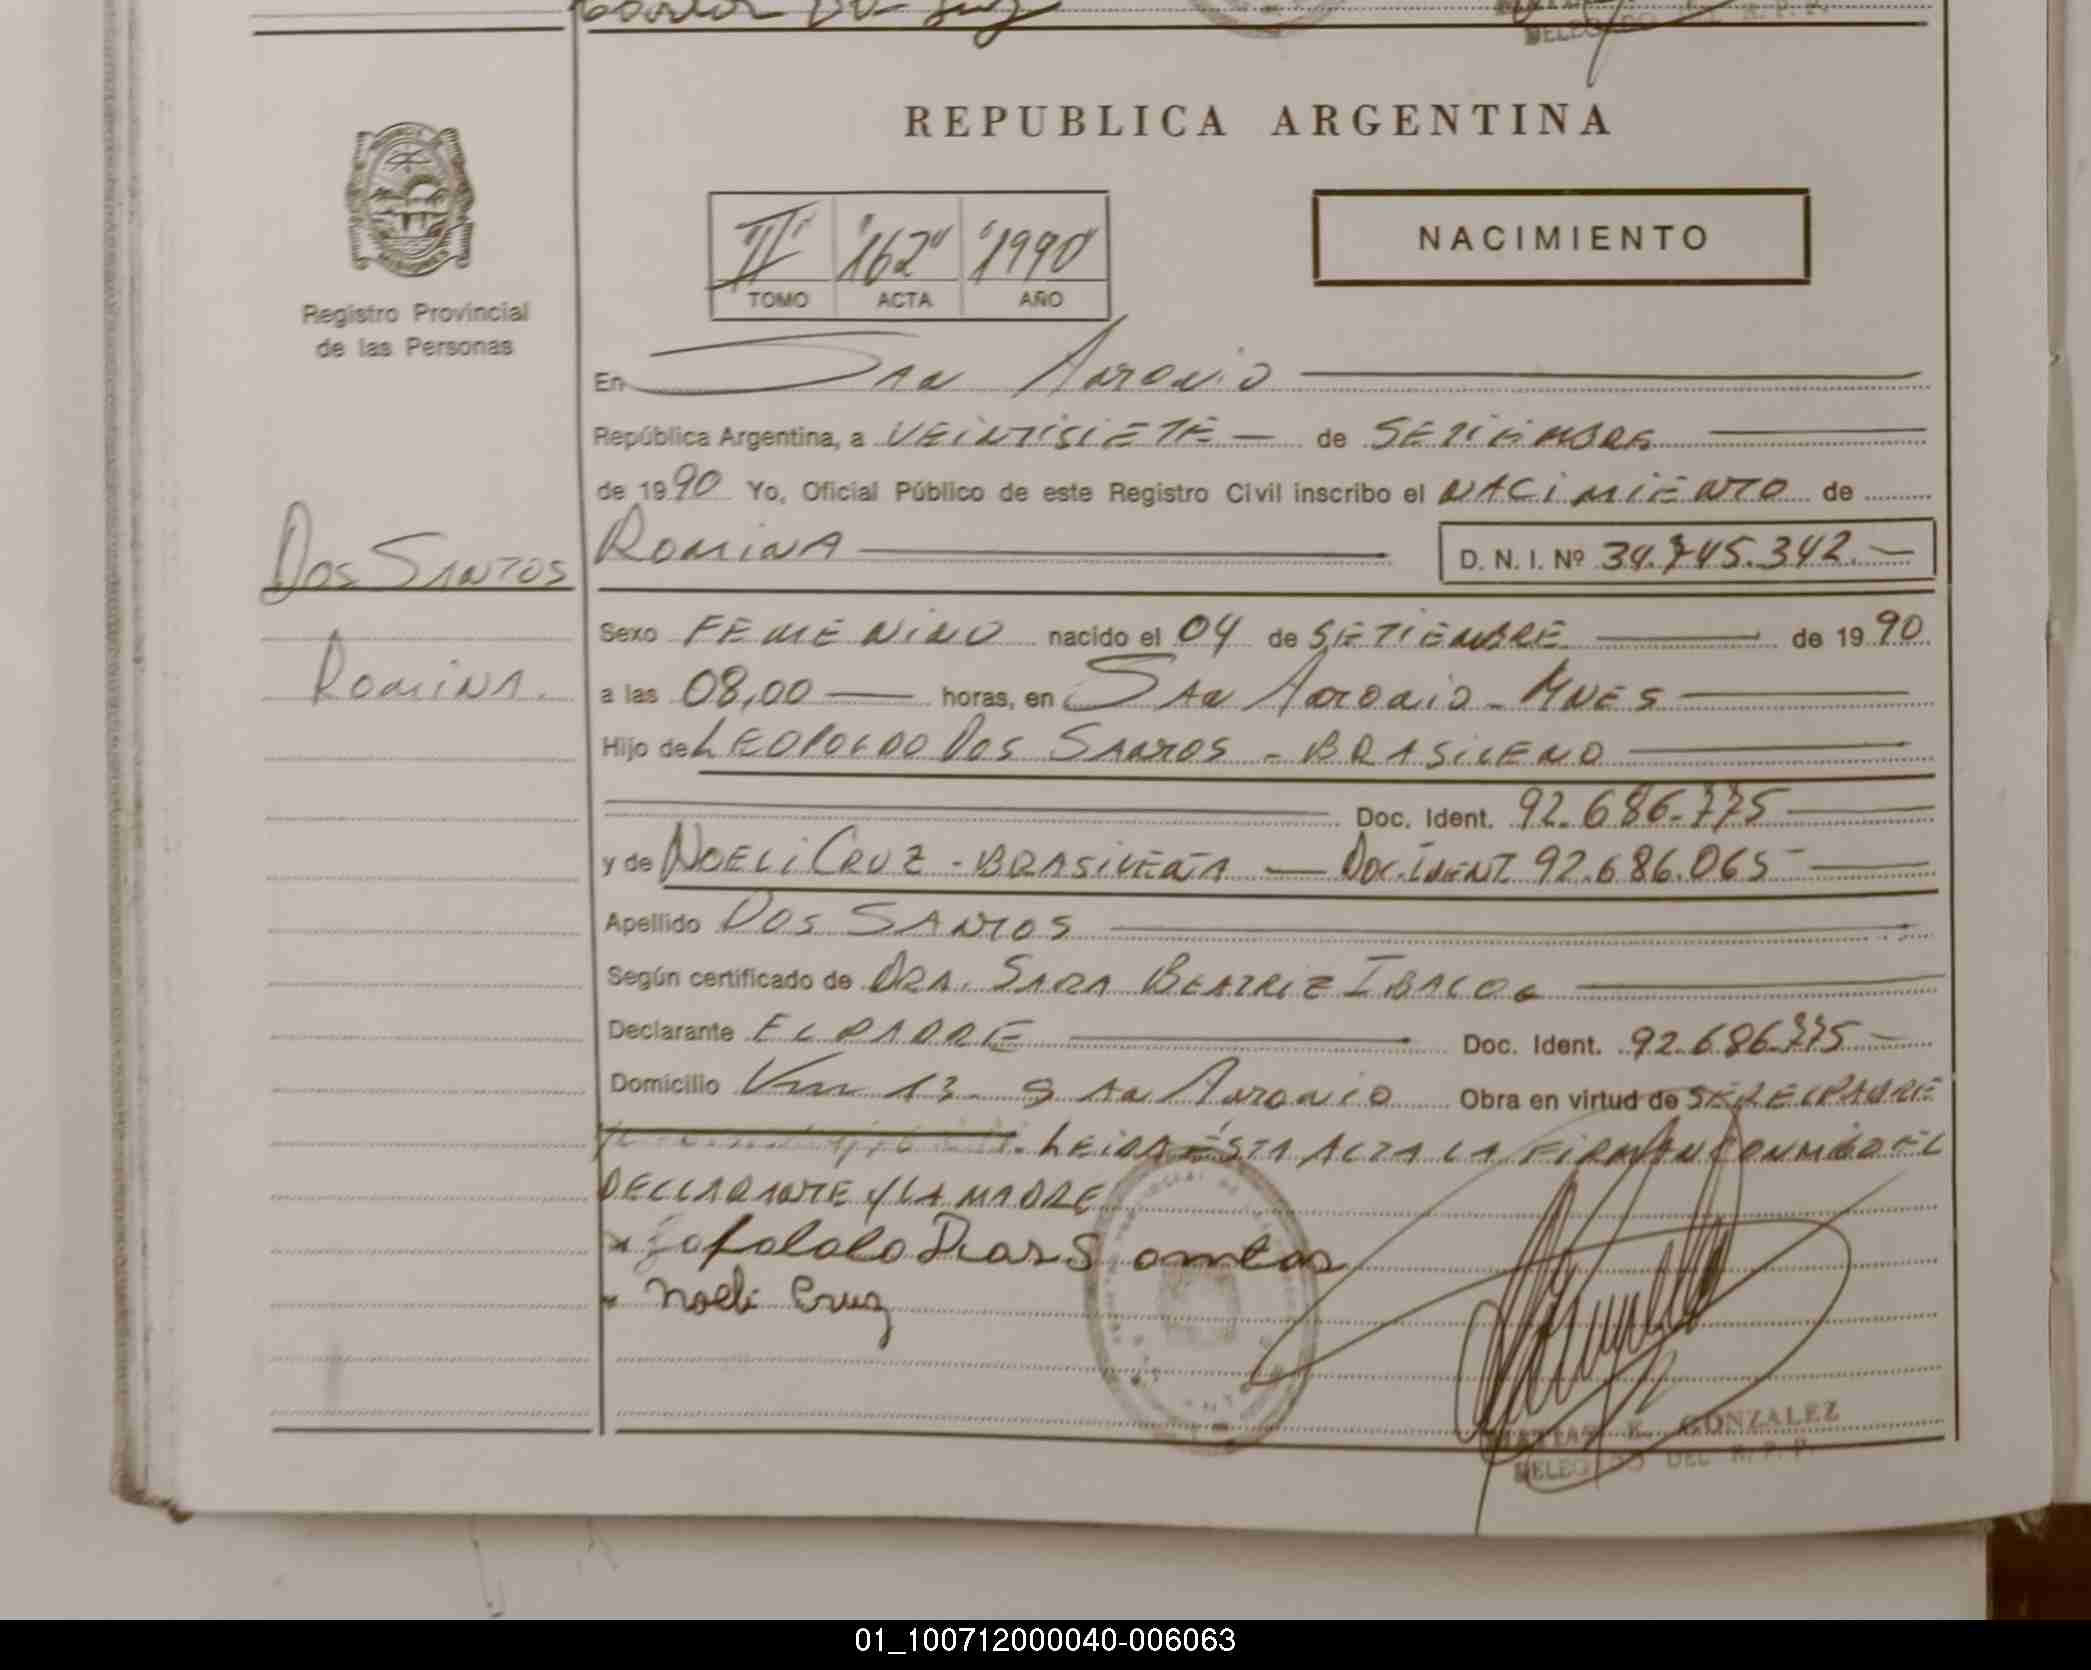 DELEGADO DEL R.P.P.
REPUBLICA ARGENTINA
"II" "162" "1990"
TOMO ACTA AÑO
NACIMIENTO
Registro Provincial
de las Personas
En San Antonio
República Argentina, a VEINTISIETE — de SETIEMBRE
de 1990 Yo, Oficial Público de este Registro Civil inscribo el NACIMIENTO de
Dos Santos
Romina
ROMINA D. N. I. Nº 34.745.342.—
Sexo FEMENINO nacido el 04 de SETIEMBRE de 1990
a las 08,00 horas, en San Antonio - Mnes
Hijo de LEOPOLDO Dos SANTOS - BRASILENO
Doc. Ident. 92.686.775
y de NOELI CRUZ - BRASILEÑA — Doc. IDENT 92.686.065
Apellido DOS SANTOS
Según certificado de DRA. SARA BEATRIZ
Declarante EL PADRE Doc. Ident. 92.686.775
Domicilio Km 13 - San Antonio Obra en virtud de SER EL PADRE
LEIDA ESTA ACTA LA FIRMAN CONMIGO EL
DECLARANTE Y LA MADRE
Noeli Cruz
E. GONZALEZ
DELEGADO DEL R.P.P.
01_100712000040-006063